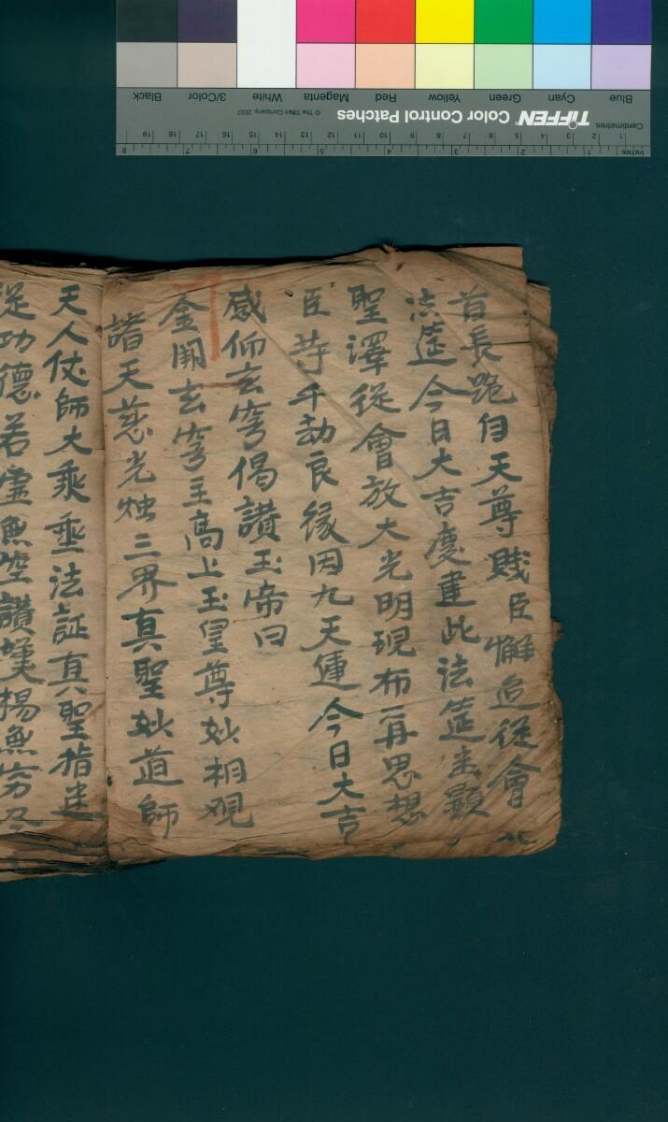 首長跪伏天尊賤臣懈怠從會
法筵今日大吉慶建此法筵
聖澤從會放大光明現布再思想
臣等千劫良緣因九天運今日大吉
感仰玄穹偈讚玉帝曰
金闕玄穹主高上玉皇尊妙相觀
諸天慈光烛三界真聖妙道師
天人仗師大乘垂法証真聖指迷
從功德若虛無空讚嘆揚無穷
Blue Cyan Green Yellow Red Magenta White 3/Color Black
TIFFEN Color Control Patches © The Tiffen Company, 2007
Centimetres 1 2 3 4 5 6 7 8 9 10 11 12 13 14 15 16 17 18 19
Inches 1 2 3 4 5 6 7 8